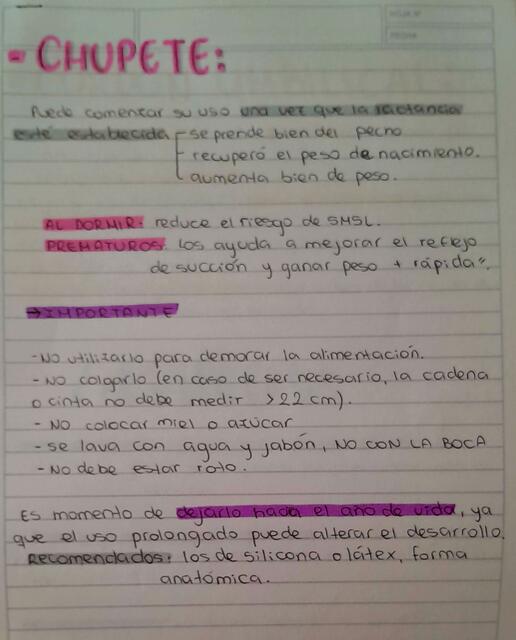 - CHUPETE:
Puede comenzar su uso una vez que la lactancia
esté establecida - se prende bien del pecho
- recuperó el peso de nacimiento.
aumenta bien de peso.
AL DORMIR: reduce el riesgo de SMSL.
PREMATUROS: los ayuda a mejorar el reflejo
de succión y ganar peso + rápida".
→IMPORTANTE
- NO utilizarlo para demorar la alimentación.
- NO colgarlo (en caso de ser necesario, la cadena
o cinta no debe medir >22 cm).
- NO colocar miel o azúcar
- se lava con agua y jabón, NO CON LA BOCA
- No debe estar roto.
Es momento de dejarlo hacia el año de vida, ya
que el uso prolongado puede alterar el desarrollo.
Recomendados: los de silicona o látex, forma
anatómica.